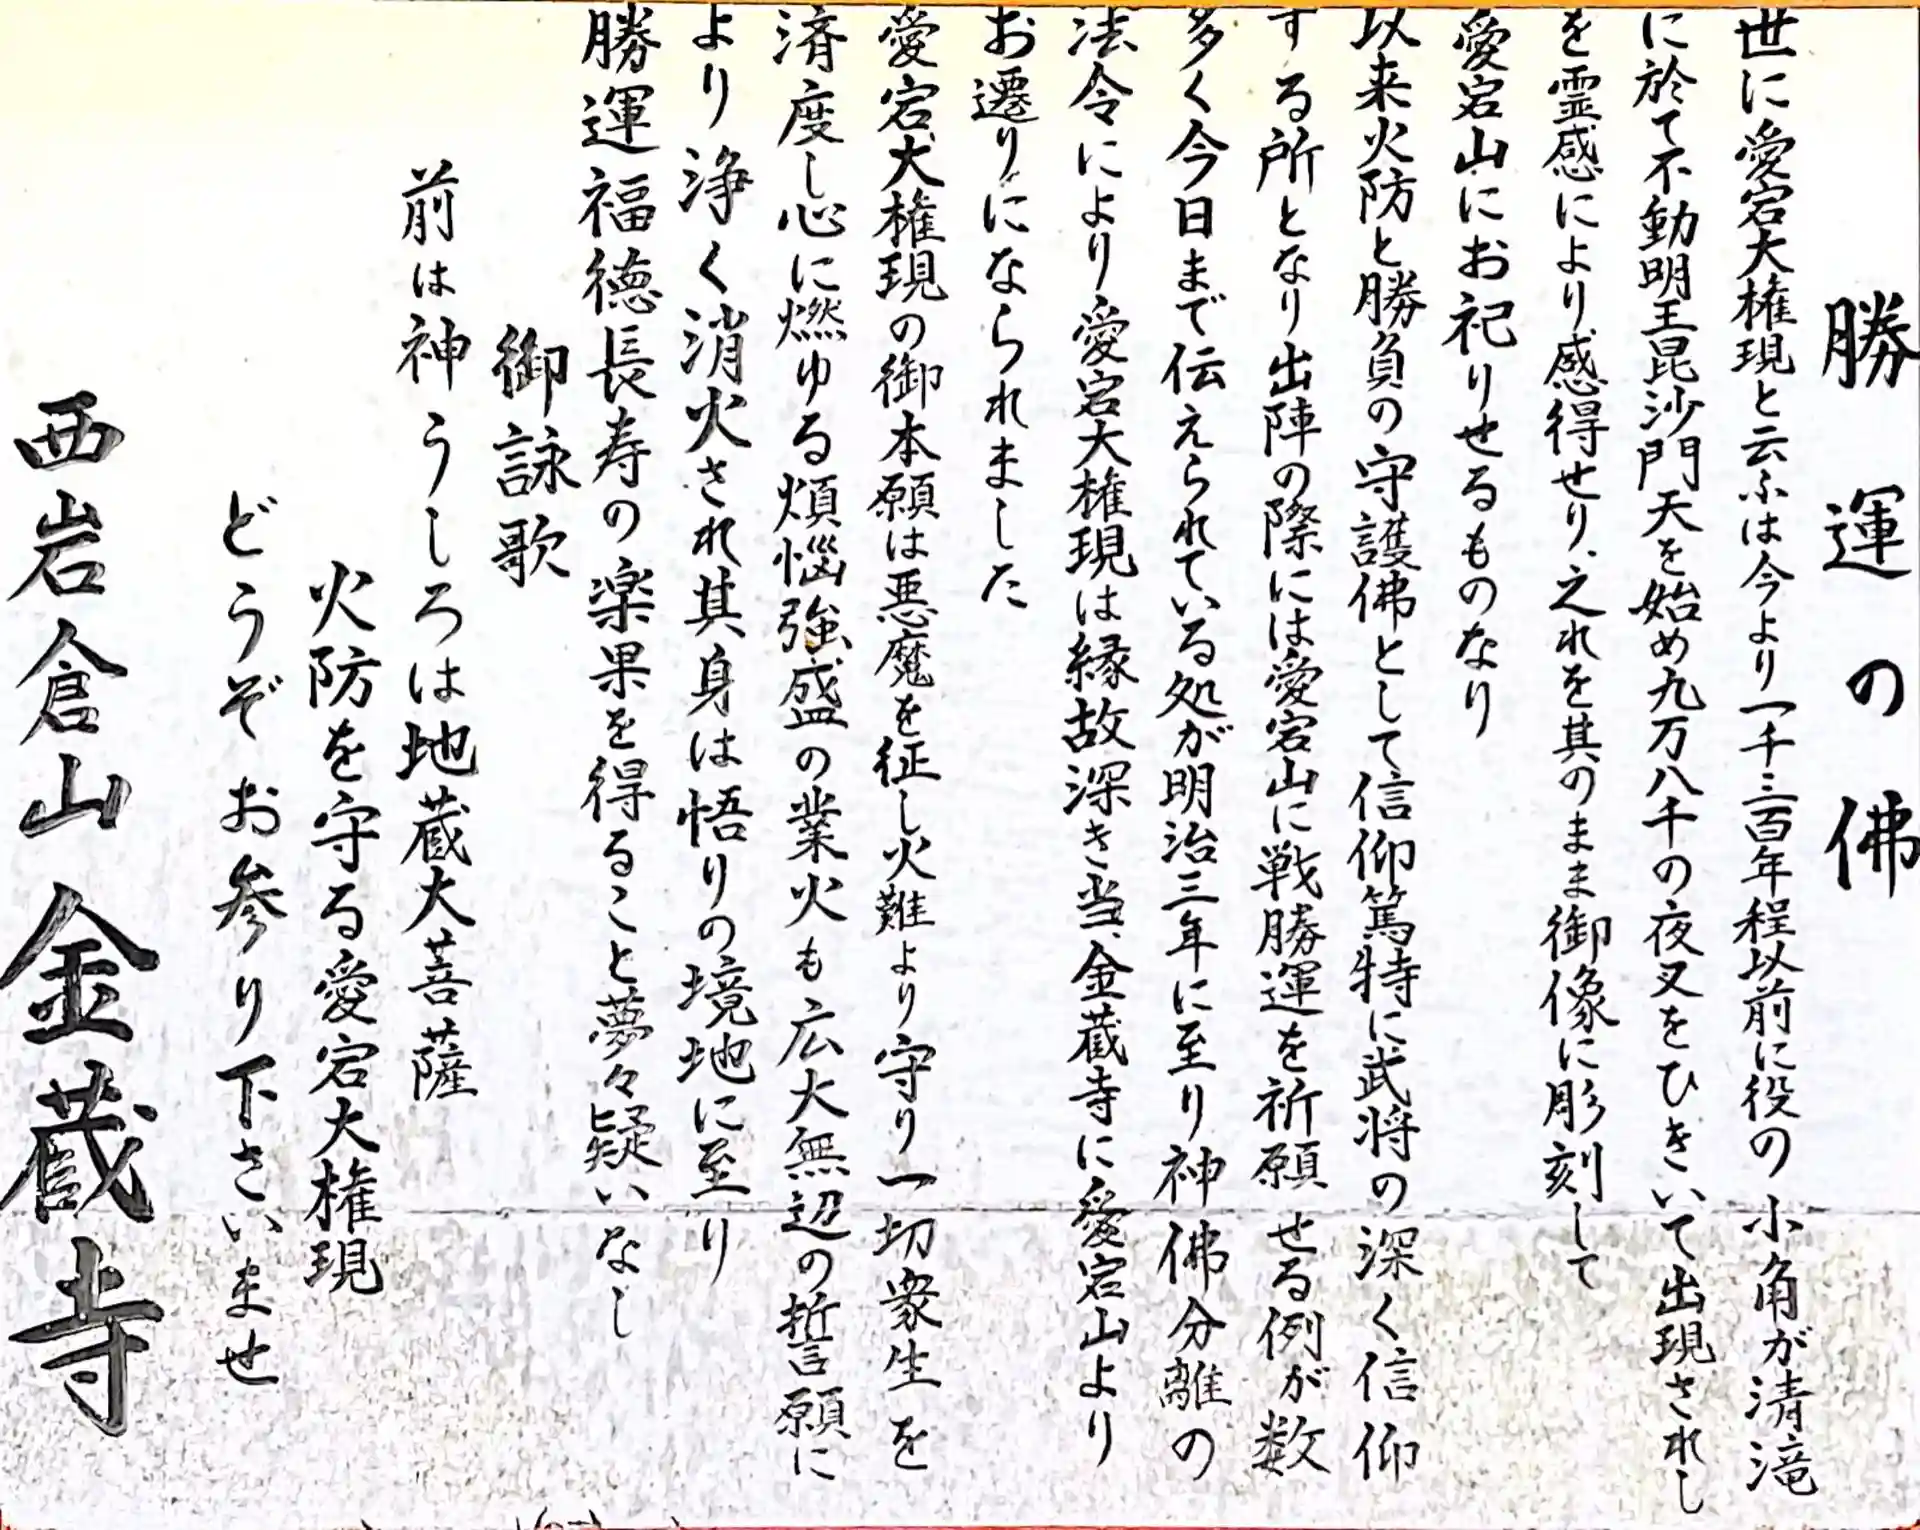 勝運の佛
世に愛宕大権現と云ふは今より一千三百年程以前に役の小角が清滝
に於て不動明王毘沙門天を始め九万八千の夜叉をひきいて出現されし
を霊感により感得せり、之れを其のまま御像に彫刻して
愛宕山にお祀りせるものなり
以来火防と勝負の守護佛として信仰篤特に武将の深く信仰
する所となり出陣の際には愛宕山に戦勝運を祈願せる例が数
多く今日まで伝えられている処が明治三年に至り神佛分離の
法令により愛宕大権現は縁故深き当、金蔵寺に愛宕山より
お遷りになられました
愛宕大権現の御本願は悪魔を征し火難より守り一切衆生を
済度し心に燃ゆる煩悩強盛の業火も広大無辺の誓願に
より浄く消火され其身は悟りの境地に至り
勝運福徳長寿の楽果を得ること夢々疑いなし
御詠歌
前は神うしろは地蔵大菩薩
火防を守る愛宕大権現
どうぞお参り下さいませ
西岩倉山金蔵寺